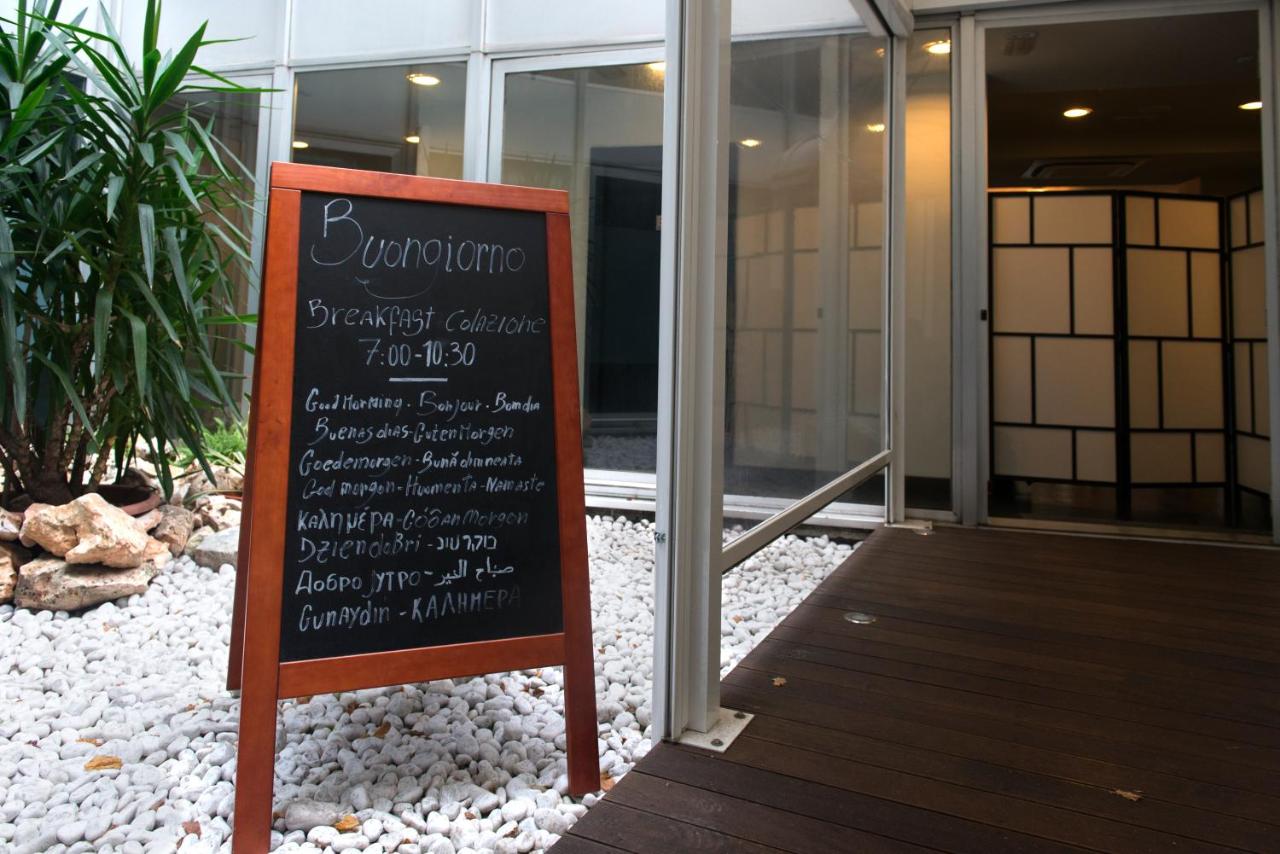 Buongiorno
Breakfast colazione
7:00-10:30
Good Morning. Bonjour. Bom dia
Buenas dias-Guten Morgen
Goedemorgen-Bună dimineata
God morgon-Huomenta-Namaste
ΚΑΛΗΜΈΡΑ-Góðan Morgon
Dzien doBri-בוקר טוב
Добро јутро-صباح الخير
Gunaydin-ΚΑΛΗΜΕΡΑ